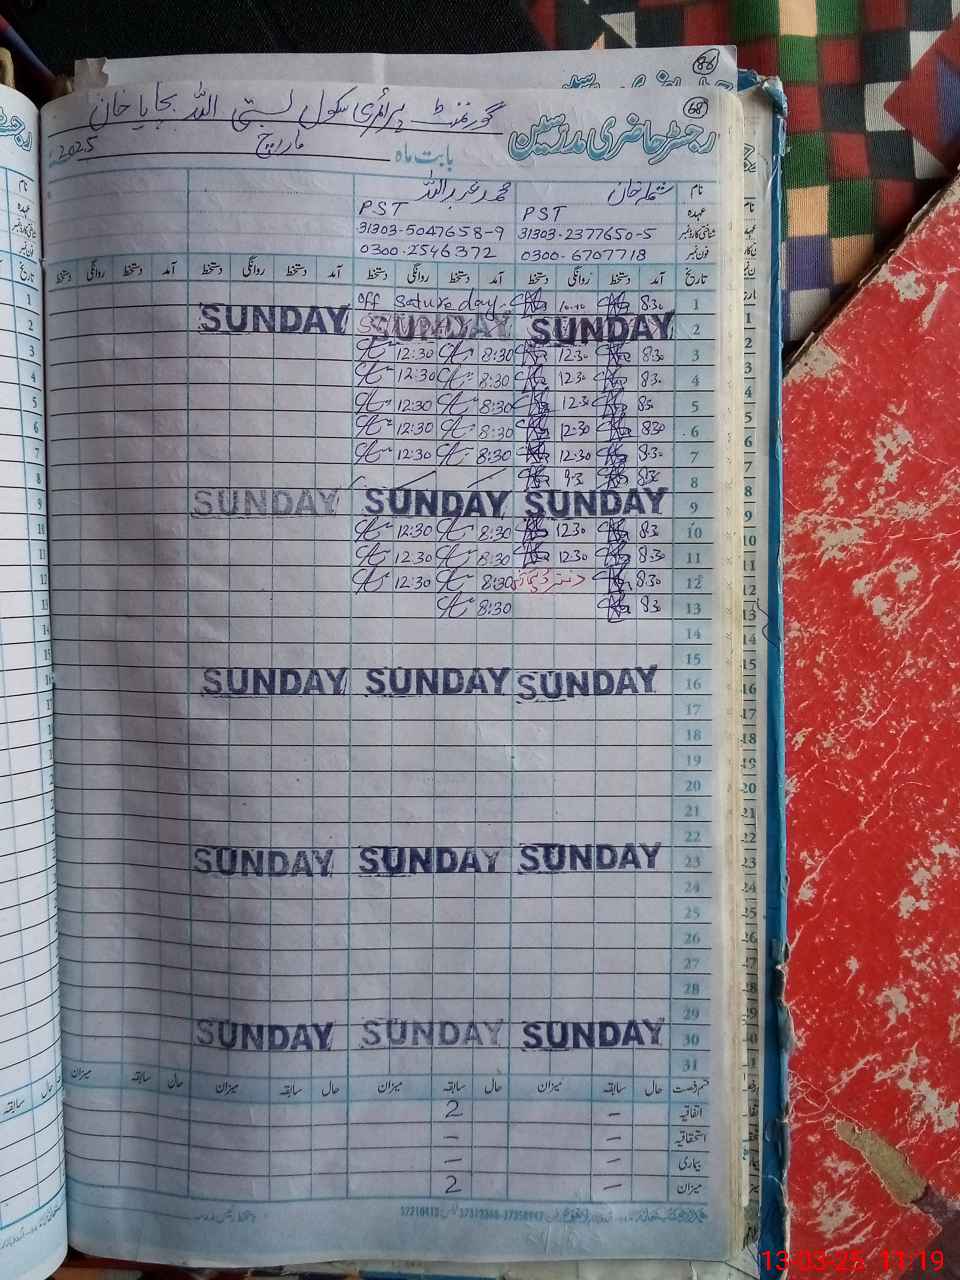 86
68
رجسٹر حاضری مدرسین
گورنمنٹ پرائمری سکول بستی اللہ بچایا خان
بابت ماہ مارچ 2025
نام شملہ خان محمد عبداللہ
عہدہ PST PST
شناختی کارڈ نمبر 31303-2377650-5 31303-5047658-9
فون نمبر 0300-6707718 0300-2546372
تاریخ آمد دستخط روانگی دستخط آمد دستخط روانگی دستخط آمد دستخط روانگی دستخط آمد دستخط روانگی دستخط
1 8:30 10:10 off Sature day.
2 SUNDAY SUNDAY SUNDAY
3 8:30 12:30 8:30 12:30
4 8:30 12:30 8:30 12:30
5 8:30 12:30 8:30 12:30
6 8:30 12:30 8:30 12:30
7 8:30 12:30 8:30 12:30
8 8:30 9:3
9 SUNDAY SUNDAY SUNDAY
10 8:30 12:30 8:30 12:30
11 8:30 12:30 8:30 12:30
12 8:30 8:30 12:30
13 8:30 8:30
14
15
16 SUNDAY SUNDAY SUNDAY
17
18
19
20
21
22
23 SUNDAY SUNDAY SUNDAY
24
25
26
27
28
29
30 SUNDAY SUNDAY SUNDAY
31
قسم رخصت حال سابقہ میزان حال سابقہ میزان حال سابقہ میزان حال سابقہ میزان
اتفاقیہ - 2
استحقاقیہ - -
بیماری - -
میزان - 2
13-03-25 11:19